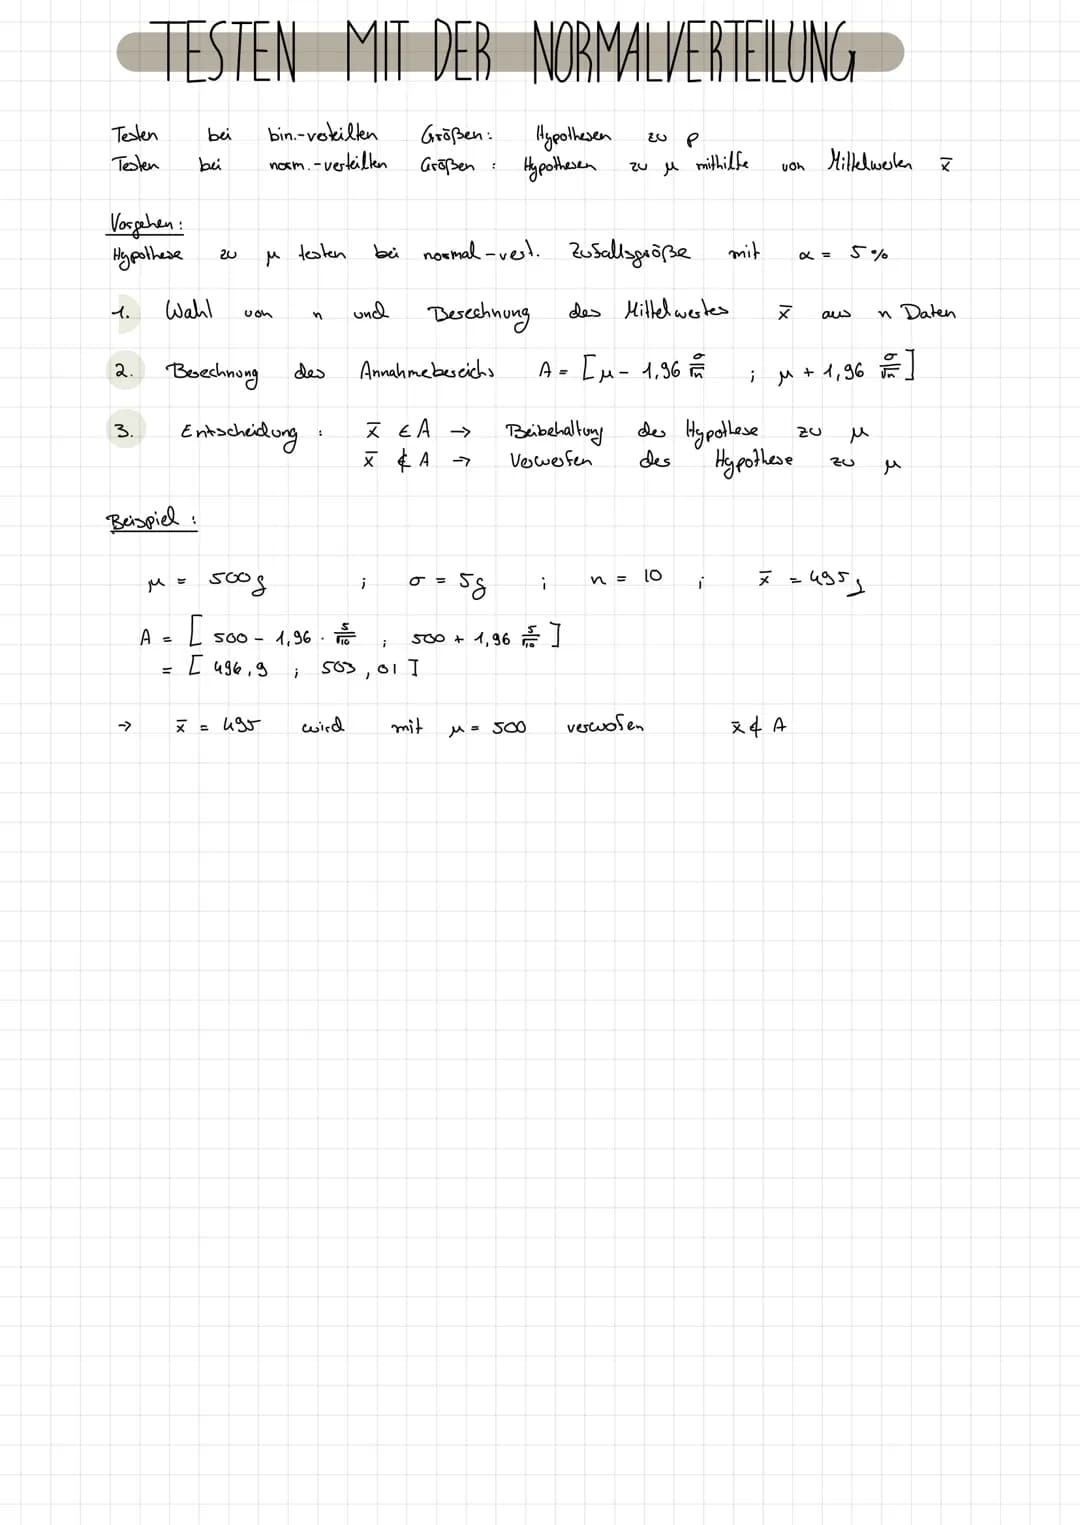 TESTEN MIT DER NORMALVERTEILUNG
Testen bei bin.-verteilten Größen: Hypothesen zu p
Testen bei norm.-verteilten Größen: Hypothesen zu μ mithilfe von Mittelwerten x̄
Vorgehen:
Hypothese zu μ testen bei normal-vert. Zufallsgröße mit α = 5%
1. Wahl von n und Berechnung des Mittelwertes x̄ aus n Daten
2. Berechnung des Annahmebereichs A = [μ - 1,96 σ/√n ; μ + 1,96 σ/√n]
3. Entscheidung: x̄ ∈ A → Beibehaltung der Hypothese zu μ
x̄ ∉ A → Verwerfen der Hypothese zu μ
Beispiel:
μ = 500g ; σ = 5g ; n = 10 ; x̄ = 495g
A = [500 - 1,96 · 5/√10 ; 500 + 1,96 5/√10]
= [496,9 ; 503,01]
→ x̄ = 495 wird mit μ = 500 verwofen x̄ ∉ A